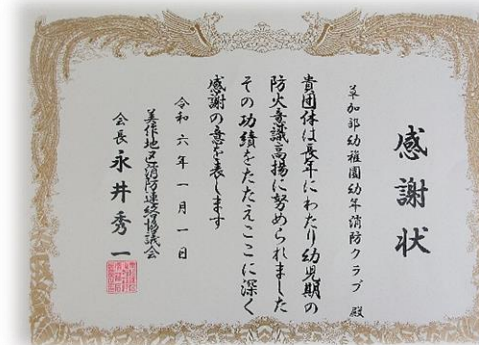 感謝状
草加部幼稚園幼年消防クラブ 殿
貴団体は長年にわたり幼児期の
防火意識高揚に努められました
その功績をたたえここに深く
感謝の意を表します
令和六年一月一日
美作地区消防連絡協議会
会長 永井秀一